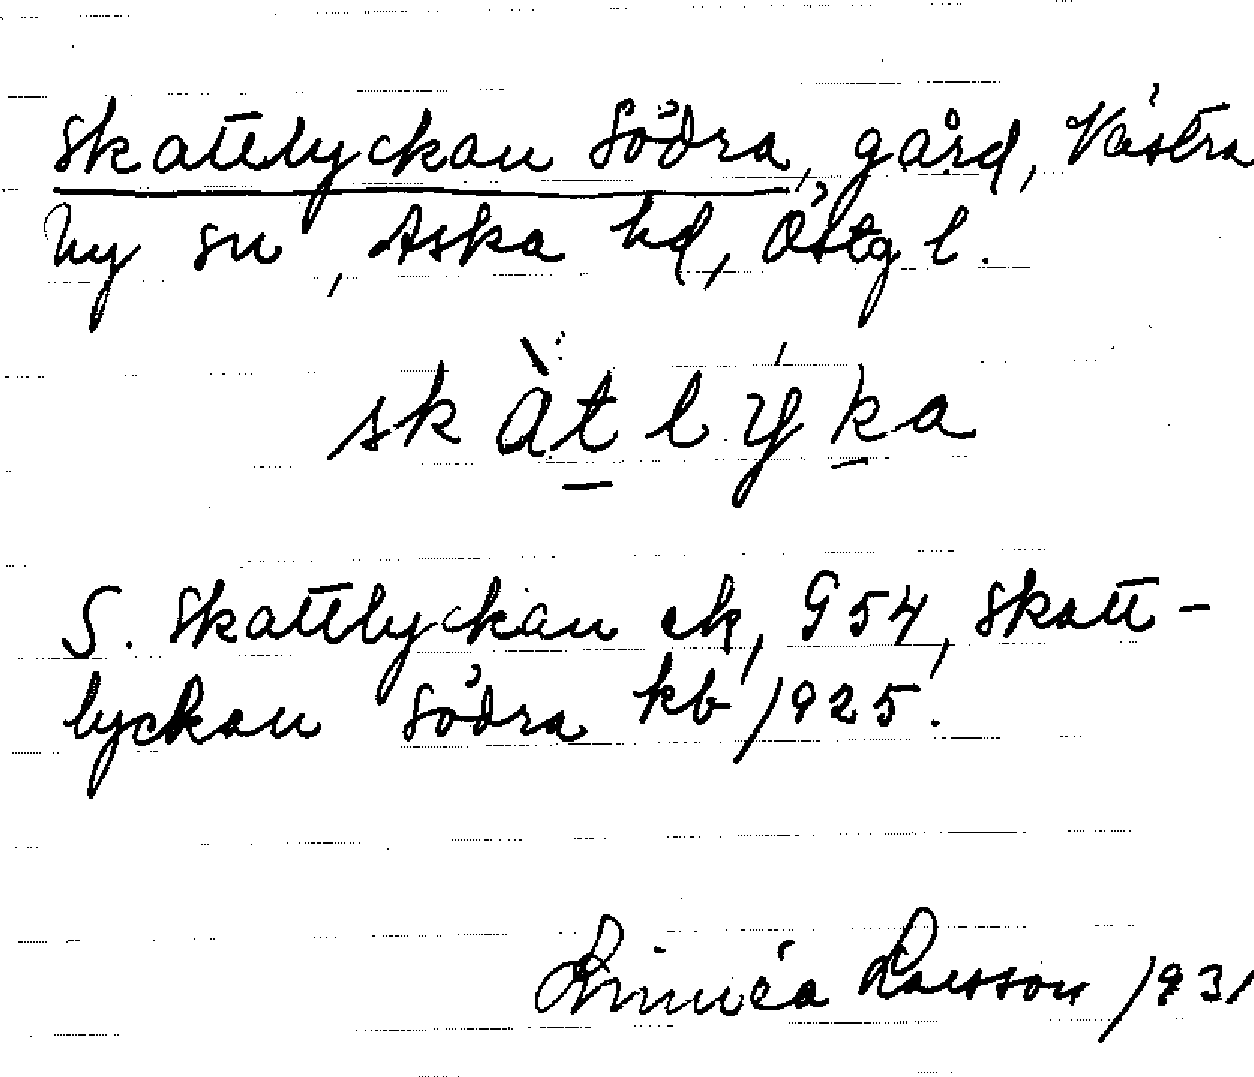 Skattlyckan Södra, gård, Västra
Ny sn, Aska hd, Östg l.
skàtlýka
S. Skattlyckan ek, G54, Skatt-
lyckan Södra kb 1925.
Linnéa Larsson 1931